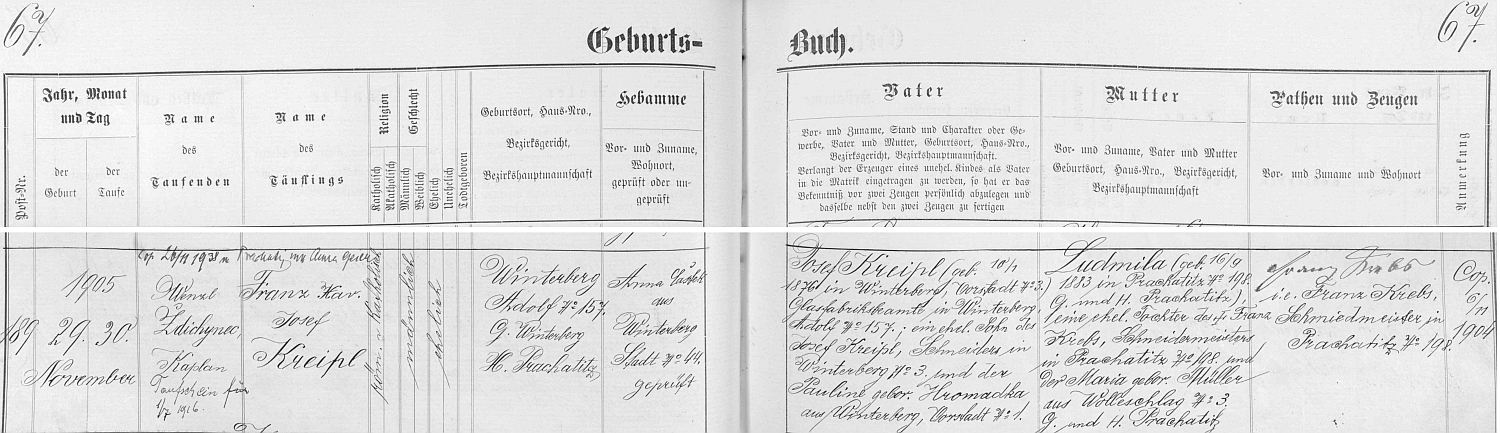 67.
67.
Geburts-
Buch.
Post-Nr.
Jahr, Monat
und Tag
der
Geburt
der
Taufe
Name
des
Taufenden
Name
des
Täuflings
Religion
Katholisch
Akatholisch
Geschlecht
Männlich
Weiblich
Ehelich
Unehelich
Todtgeboren
Geburtsort, Haus-Nro.,
Bezirksgericht,
Bezirkshauptmannschaft
Hebamme
Vor- und Zuname,
Wohnort,
geprüft oder un-
geprüft
Vater
Vor- und Zuname, Stand und Charakter oder Ge-
werbe, Vater und Mutter, Geburtsort, Haus-Nro.,
Bezirksgericht, Bezirkshauptmannschaft.
Verlangt der Erzeuger eines unehel. Kindes als Vater
in die Matrik eingetragen zu werden, so hat er das
Bekenntniß vor zwei Zeugen persönlich abzulegen und
dasselbe nebst den zwei Zeugen zu fertigen
Mutter
Vor- und Zuname, Vater und Mutter
Geburtsort, Haus-Nro., Bezirksgericht,
Bezirkshauptmannschaft
Pathen und Zeugen
Vor- und Zuname und Wohnort
Anmerkung
189
1905
29. 30.
November
Cop. 26/11 1938 in Prachatitz mit Anna
Wenzl
Zdichynec,
Kaplan
Taufschein für
1/7 1916.
Franz Xav.
Josef
Kreipl
röm. n katholisch
männlich
ehelich
Winterberg
Adolf No 157.
G. Winterberg
H. Prachatitz
Anna
aus
Winterberg
Stadt No 44
geprüft
Josef Kreipl (geb. 10/1
1876 in Winterberg, Vorstadt No 3.)
Glasfabriksbeamte in Winterberg
Adolf No 157.; ein ehel. Sohn des
Josef Kreipl, Schneiders in
Winterberg No 3. und der
Pauline gebor. Hromadka
aus Winterberg, Vorstadt No 1.
Ludmila (geb. 16/9
1883 in Prachatitz No 198.
G. und H. Prachatitz),
eine ehel. Tochter des Franz
Krebs, Schmiedemeisters
in Prachatitz No 198. und
der Maria gebor. Müller
aus Wolleschlag No 3.
G. und H. Prachatitz
Franz Krebs
i. e. Franz Krebs,
Schmiedmeister in
Prachatitz No 198.
Cop.
6/11
1904